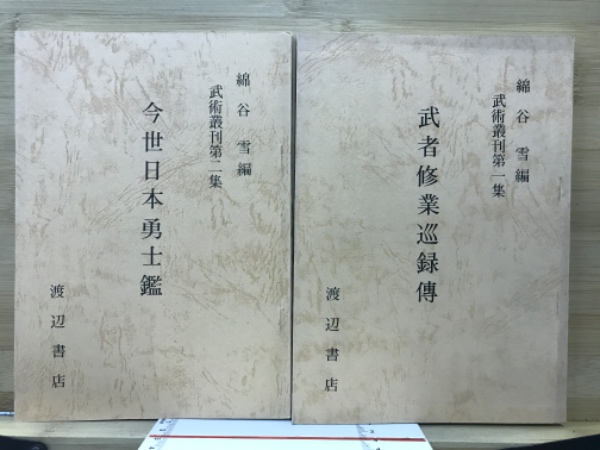 綿谷雪編
武術叢刊第一集
武者修業巡録傳
渡辺書店
綿谷雪編
武術叢刊第二集
今世日本勇士鑑
渡辺書店